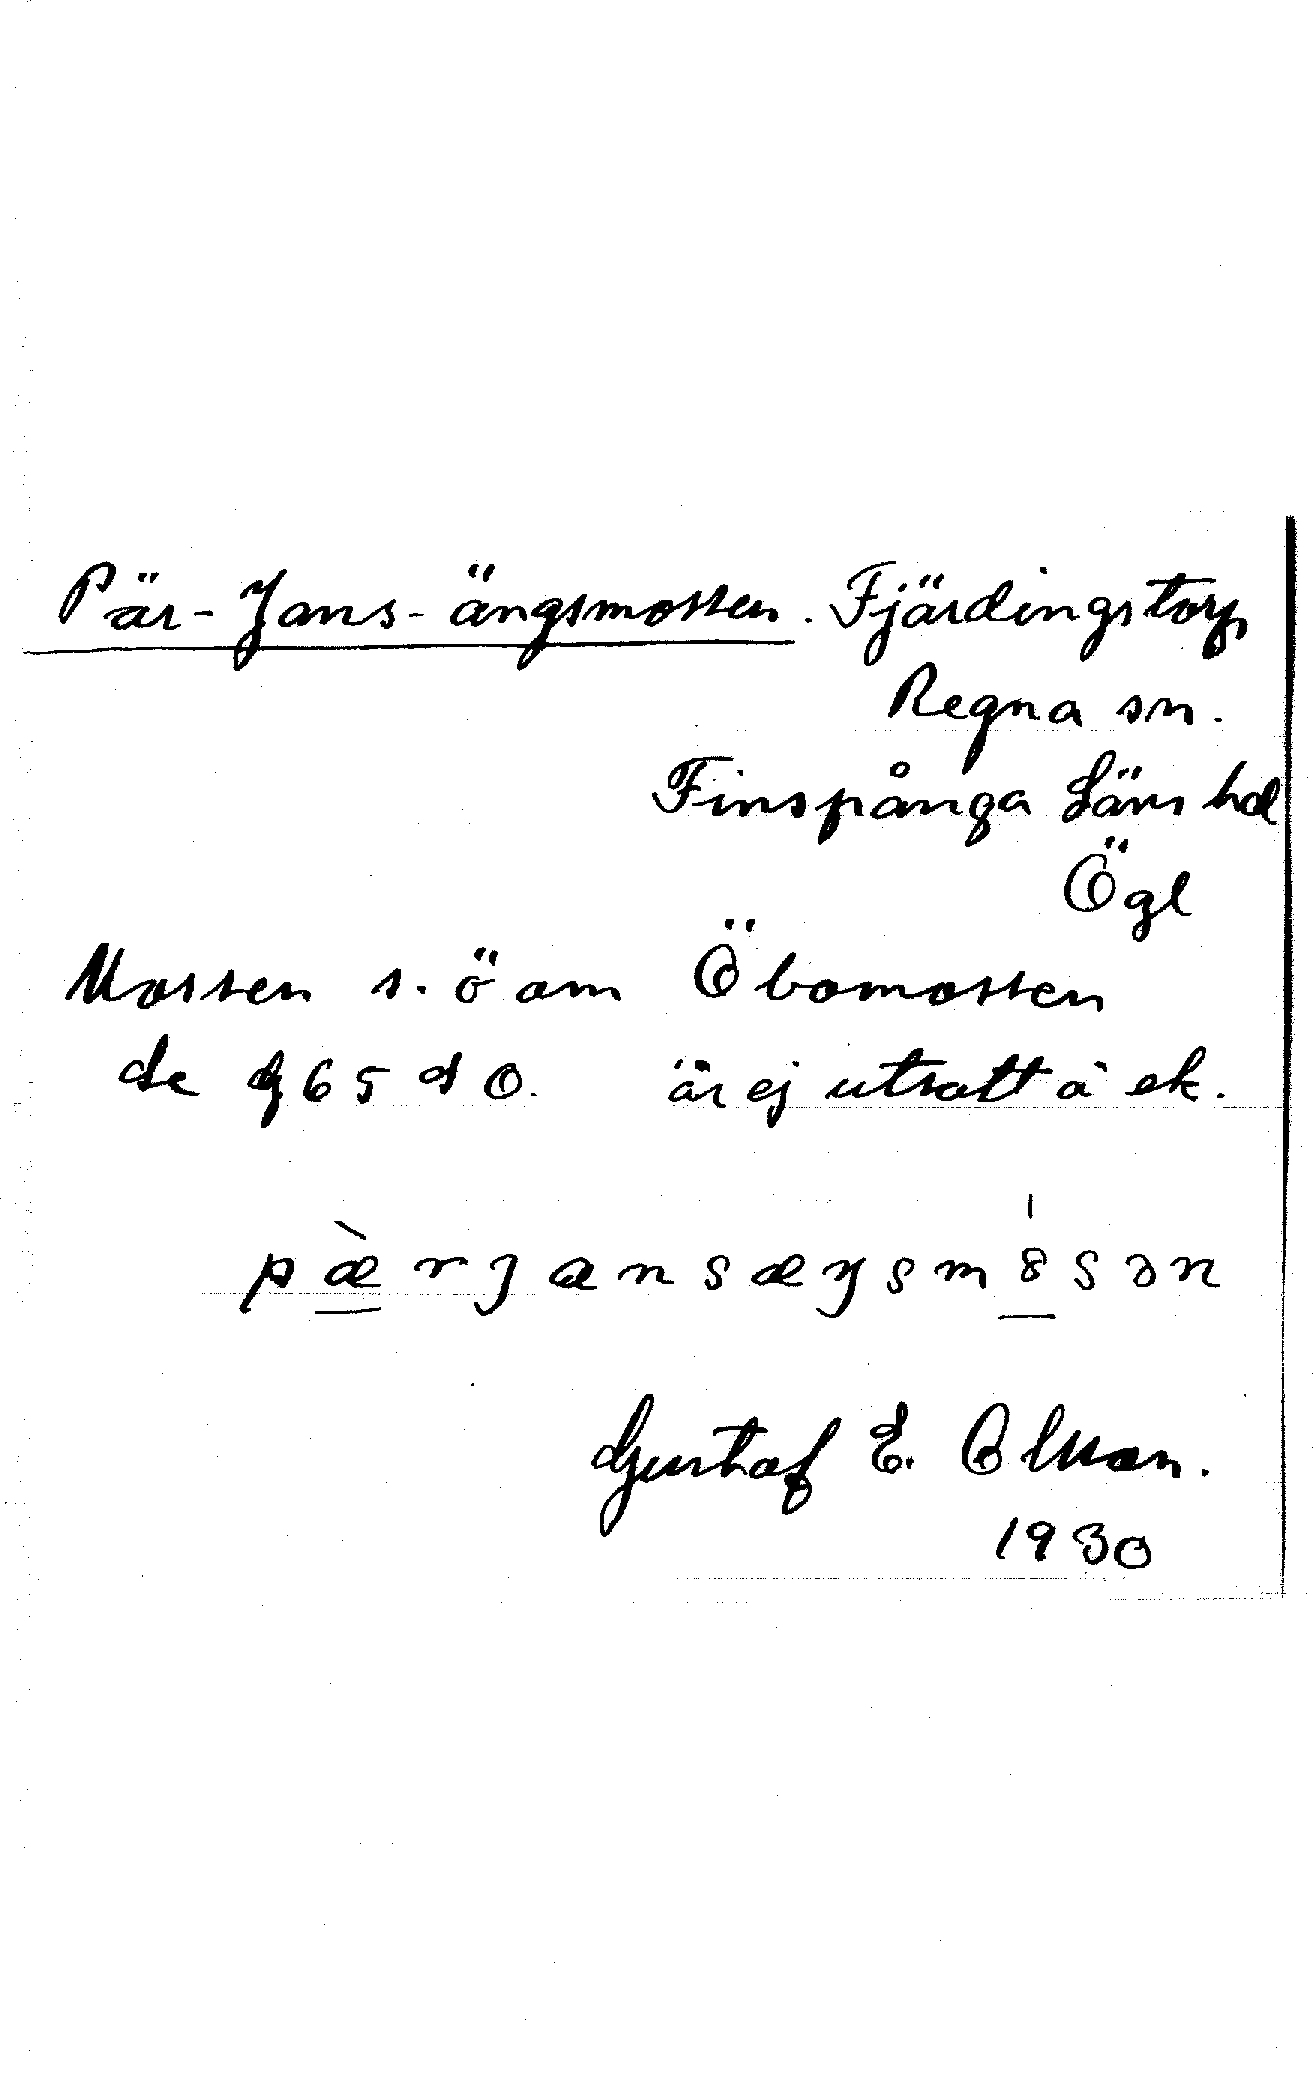 Pär-Jans-ängsmossen. Fjärdingstorp
Regna sn.
Finspånga Läns hd
Ögl
Mossen s. ö om Öbomossen
är ej utsatt å ek.
pæ̀rjansæŋsm8́sən
Gustaf E. Olsson.
1930